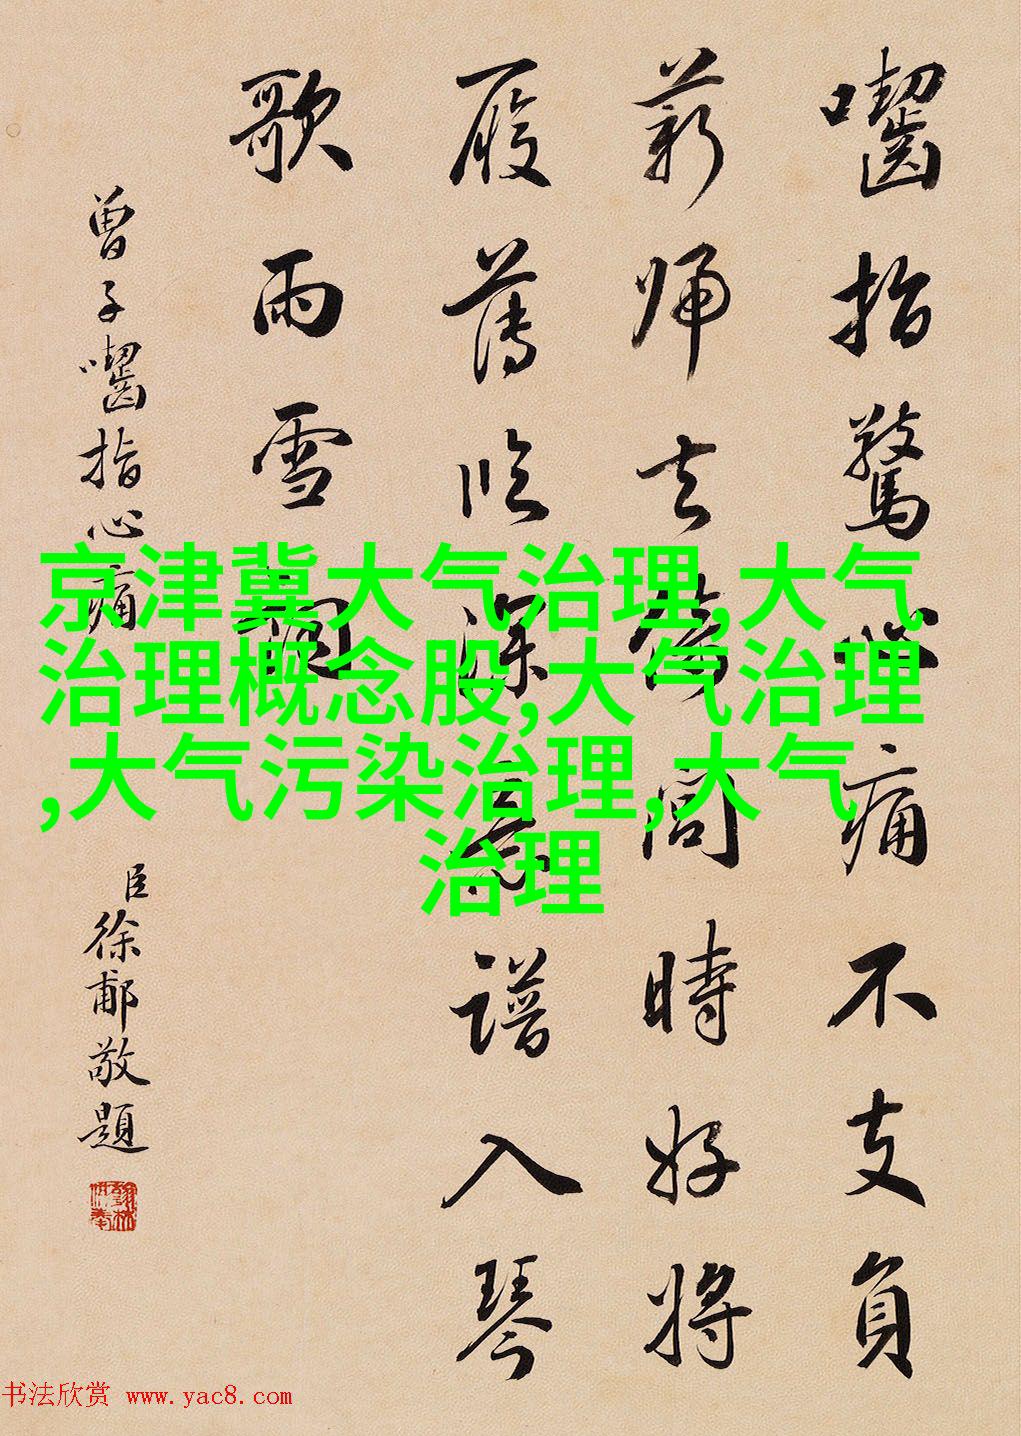 囓指驚心痛不支負
薪歸去蒼問時好將
履薄臨深意譜入琴
歌雨雪調
曾子囓指心痛
臣徐郙敬題
京津冀大气治理,大气
治理概念股,大气治理
,大气污染治理,大气
治理
书法欣赏 www.yac8.com